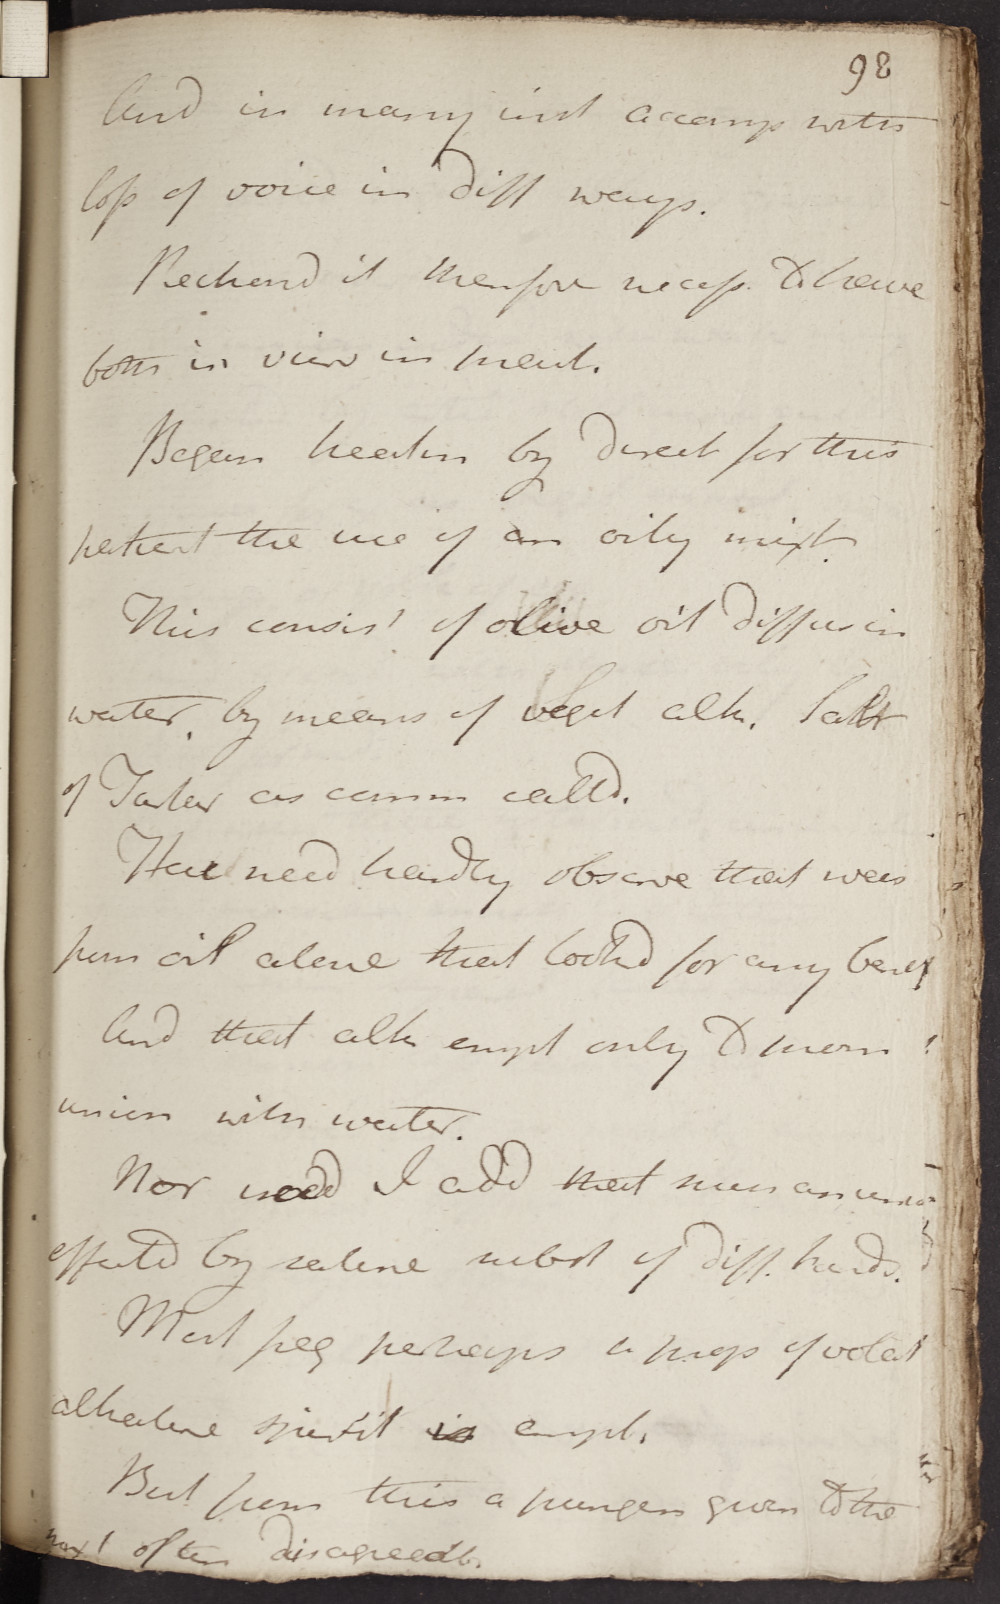 98
And in many inst accomp with
loss of voice in diff ways.
Reckond it therefore necess. to have
both in view in treat.
Began healm by direct for this
patient the use of an oily mixt.
This consist of olive oil diffus in
water, by means of veget alk. Salt
of Tartar as comm calld.
Here need hardly observe that was
from oil alone that lookd for any benef
And that alk empt only to prom
union with water.
Nor need I add that such an union
effectd by saline subst of diff. kinds.
Most freq perhaps a prep of volat
alkaline spirit is empl.
But from this a pungen given to the
mixt often disagreeab.